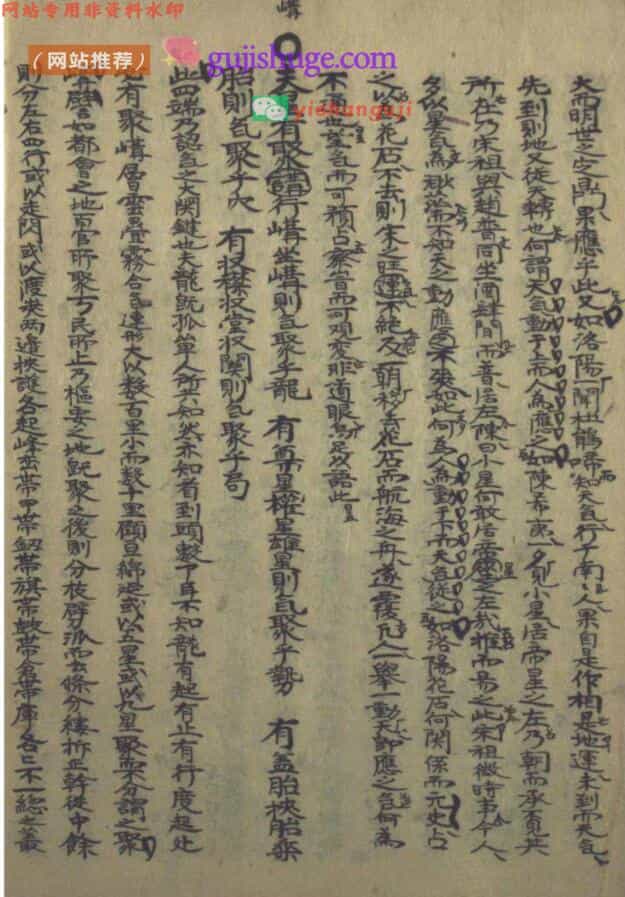 网站专用非资料水印
（网站推荐）
gujishuge.com
yishanguji
搆
大而明世之定鼎果應乎此又如洛陽一聞杜鵑啼知天氣行于南人果自是作相是地運未到而天氣
先到則地又從天轉也何謂天氣動于上而人為應之如陳希夷一夕見小星居帝星之左乃朝而承頁其
所在乃宋祖與趙普同坐酒肆間而普居左陳曰小星何敢居帝之左推而易之此宋祖微時事今人
多以為不知天之動應不爽如此何為人為動于下而天氣從之如洛陽花石何関係而元史占
之以花石不去則宋之旺運不絕及一朝移去花石而航海之舟遂覆凡人一舉一動天即應之氣何為
不可望氣而可預占察首而可观变非道眼烏足以語此
夫有聚講行搆坐搆則氣聚乎龍 有尊星權星雄星則氣聚乎勢 有盖胎挾胎乘
胎則氣聚乎穴 有收襟收堂收関則氣聚乎局
此四端乃認氣之大関鍵也夫龍既孤單人所共知然亦知看到頭數下耳不知龍有起有止有行度起处
有聚搆層雲叠霧合氣連形大以數百里小而數十里顧且綿延或以五星或以九星聚而不分謂之聚
搆譬如都會之地百官所聚万民所止乃樞要之地既聚之後則分枝劈派而去條分縷析正幹從中餘
則分左右四行或以走閃或以渡峽两邊挾護各起峰峦帶甲帶劍帶旗帶鼓帶倉帶庫各已不一總之叢